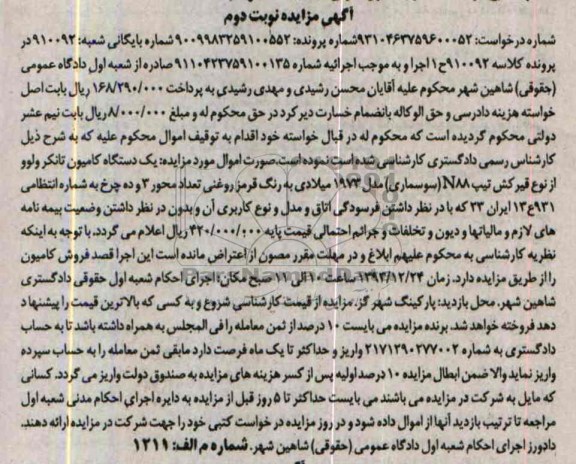 آگهی مزایده نوبت دوم
شماره درخواست: ۹۳۱۰۴۶۳۷۵۹۶۰۰۰۵۲شماره پرونده: ۹۰۰۹۹۸۳۲۵۹۱۰۰۵۵۲ شماره بایگانی شعبه: ۹۱۰۰۹۲ در
پرونده کلاسه ۹۱۰۰۹۲ح۱ اجرا و به موجب اجرائیه شماره ۹۱۱۰۴۲۳۷۵۹۱۰۰۱۳۵ صادره از شعبه اول دادگاه عمومی
(حقوقی) شاهین شهر محکوم علیه آقایان محسن رشیدی و مهدی رشیدی به پرداخت ۱۶۸/۲۹۰/۰۰۰ ریال بابت اصل
خواسته هزینه دادرسی و حق الوکاله بانضمام خسارت دیرکرد در حق محکوم له و مبلغ ۸/۰۰۰/۰۰۰ ریال بابت نیم عشر
دولتی محکوم گردیده است که محکوم له در قبال خواسته خود اقدام به توقیف اموال محکوم علیه که به شرح ذیل
کارشناس رسمی دادگستری کارشناسی شده است نموده است.صورت اموال مورد مزایده: یک دستگاه کامیون تانکر ولوو
از نوع قیر کش تیپ N۸۸ (سوسماری) مدل ۱۹۷۳ میلادی به رنگ قرمز روغنی تعداد محور ۳ و ده چرخ به شماره انتظامی
۹۳۱ع۱۳ ایران ۲۳ که با در نظر داشتن فرسودگی اتاق و مدل و نوع کاربری آن و بدون در نظر داشتن وضعیت بیمه نامه
های لازم و مالیاتها و دیون و تخلفات و جرائم احتمالی قیمت پایه ۴۲۰/۰۰۰/۰۰۰ ریال اعلام می گردد. با توجه به اینکه
نظریه کارشناسی به محکوم علیهم ابلاغ و در مهلت مقرر مصون از اعتراض مانده است این اجرا قصد فروش کامیون
را از طریق مزایده دارد. زمان ۱۳۹۳/۱۲/۲۴ ساعت ۱۰ الی ۱۱ صبح مکان: اجرای احکام شعبه اول حقوقی دادگستری
شاهین شهر. محل بازدید: پارکینگ شهر گز. مزایده از قیمت کارشناسی شروع و به کسی که بالاترین قیمت را پیشنهاد
دهد فروخته خواهد شد. برنده مزایده می بایست ۱۰ درصد از ثمن معامله را فی المجلس به همراه داشته باشد تا به حساب
دادگستری به شماره ۲۱۷۱۲۹۰۲۷۷۰۰۲ واریز و حداکثر تا یک ماه فرصت دارد مابقی ثمن معامله را به حساب سپرده
واریز نماید والا ضمن ابطال مزایده ۱۰ درصد اولیه پس از کسر هزینه های مزایده به صندوق دولت واریز می گردد. کسانی
که مایل به شرکت در مزایده می باشند می بایست حداکثر تا ۵ روز قبل از مزایده به دایره اجرای احکام مدنی شعبه اول
مراجعه تا ترتیب بازدید آنها از اموال داده شود و در روز مزایده در خواست کتبی خود را جهت شرکت در مزایده ارائه دهند.
دادورز اجرای احکام شعبه اول دادگاه عمومی (حقوقی) شاهین شهر. شماره م الف: ۱۲۱۱